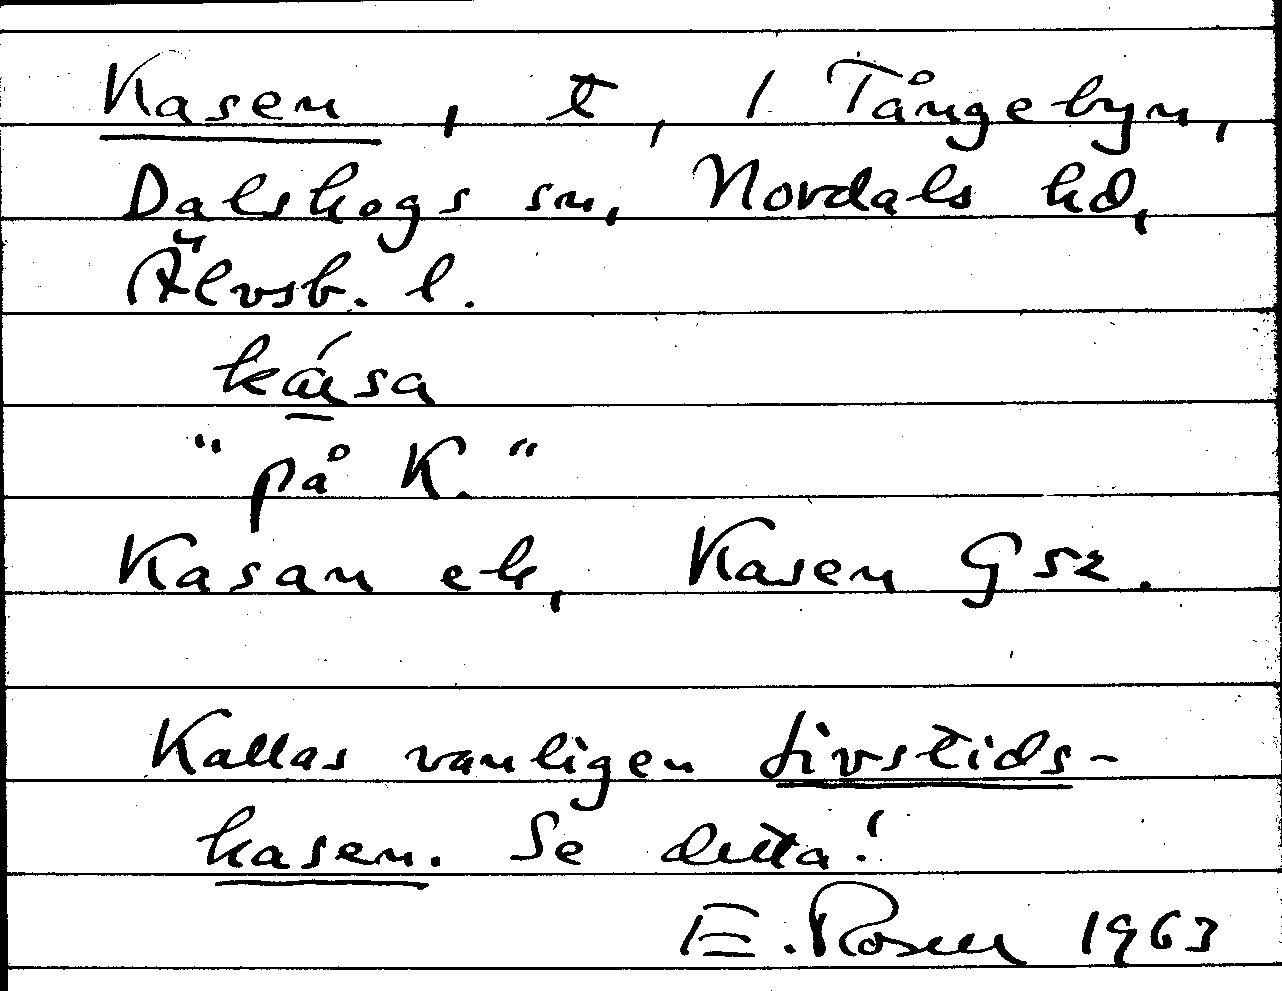 Kasen, t, 1 Tångebyn,
Dalskogs sn, Nordals hd,
Älvsb. l.
ká̱sa
"på K."
Kasan ek, Kasen Gsz.
Kallas vanligen Livstids-
kasen. Se detta!
E. Rosell 1963